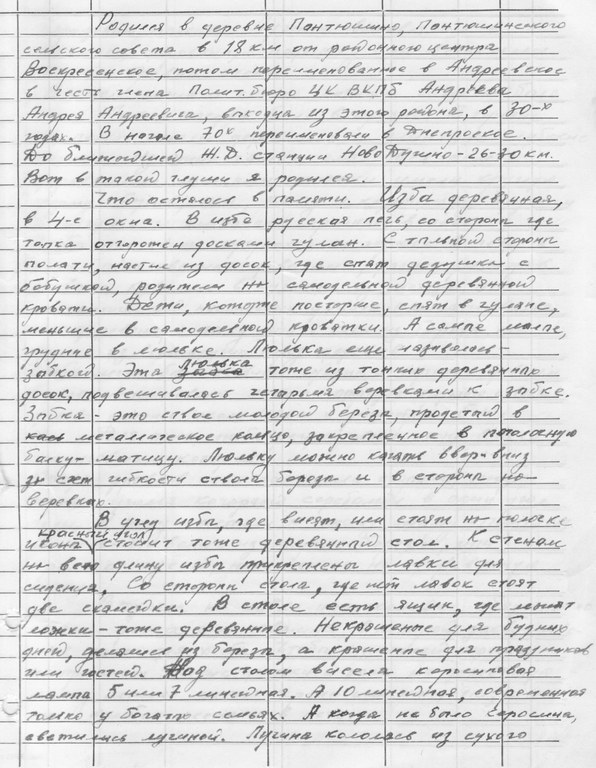 Родился в деревне Пантюшино, Пантюшинского
сельского совета в 18 км от районного центра
Воскресенское, потом переименованное в Андреевское
в честь члена Полит.бюро ЦК ВКПб Андреева
Андрея Андреевича, выходца из этого района, в 30-х
годах. В начале 70х переименовали в Днепровское.
До ближайшей Ж.Д. станции НовоДугино-26-30 км.
Вот в такой глуши я родился.
Что осталось в памяти. Изба деревянная,
в 4-е окна. В избе русская печь, со стороны где
топка отгорожен досками чулан. С тыльной стороны
полати, настил из досок, где спят дедушка с
бабушкой, родители на самодельной деревянной
кровати. Дети, которые постарше, спят в чулане,
меньшие в самодельной кроватки. А самые малые,
грудные в люльке. Люлька еще называлась-
зыбкой. Эта люлька тоже из тонких деревянных
досок, подвешивалась четырьмя веревками к зыбке.
Зыбка - это ствол молодой березы, продетый в
металлическое кольцо, закрепленное в потолочную
балку-матицу. Люльку можно качать вверх-вниз
за счет гибкости ствола березы и в стороны на
веревках.
В углу избы, где висят, или стоят на полочке
иконы красный угол стоит тоже деревянный стол. К стенам
на всю длину избы прикреплены лавки для
сидения. Со стороны стола, где нет лавок стоят
две скамейки. В столе есть ящик, где лежат
ложки-тоже деревянные. Некрашеные для будних
дней, делались из березы, а крашеные для праздников
или гостей. Над столом висела керосиновая
лампа 5 или 7 линейная. А 10 линейная, современная
только у богатых семьях. А когда не было керосина,
светились лучиной. Лучина кололась из сухого